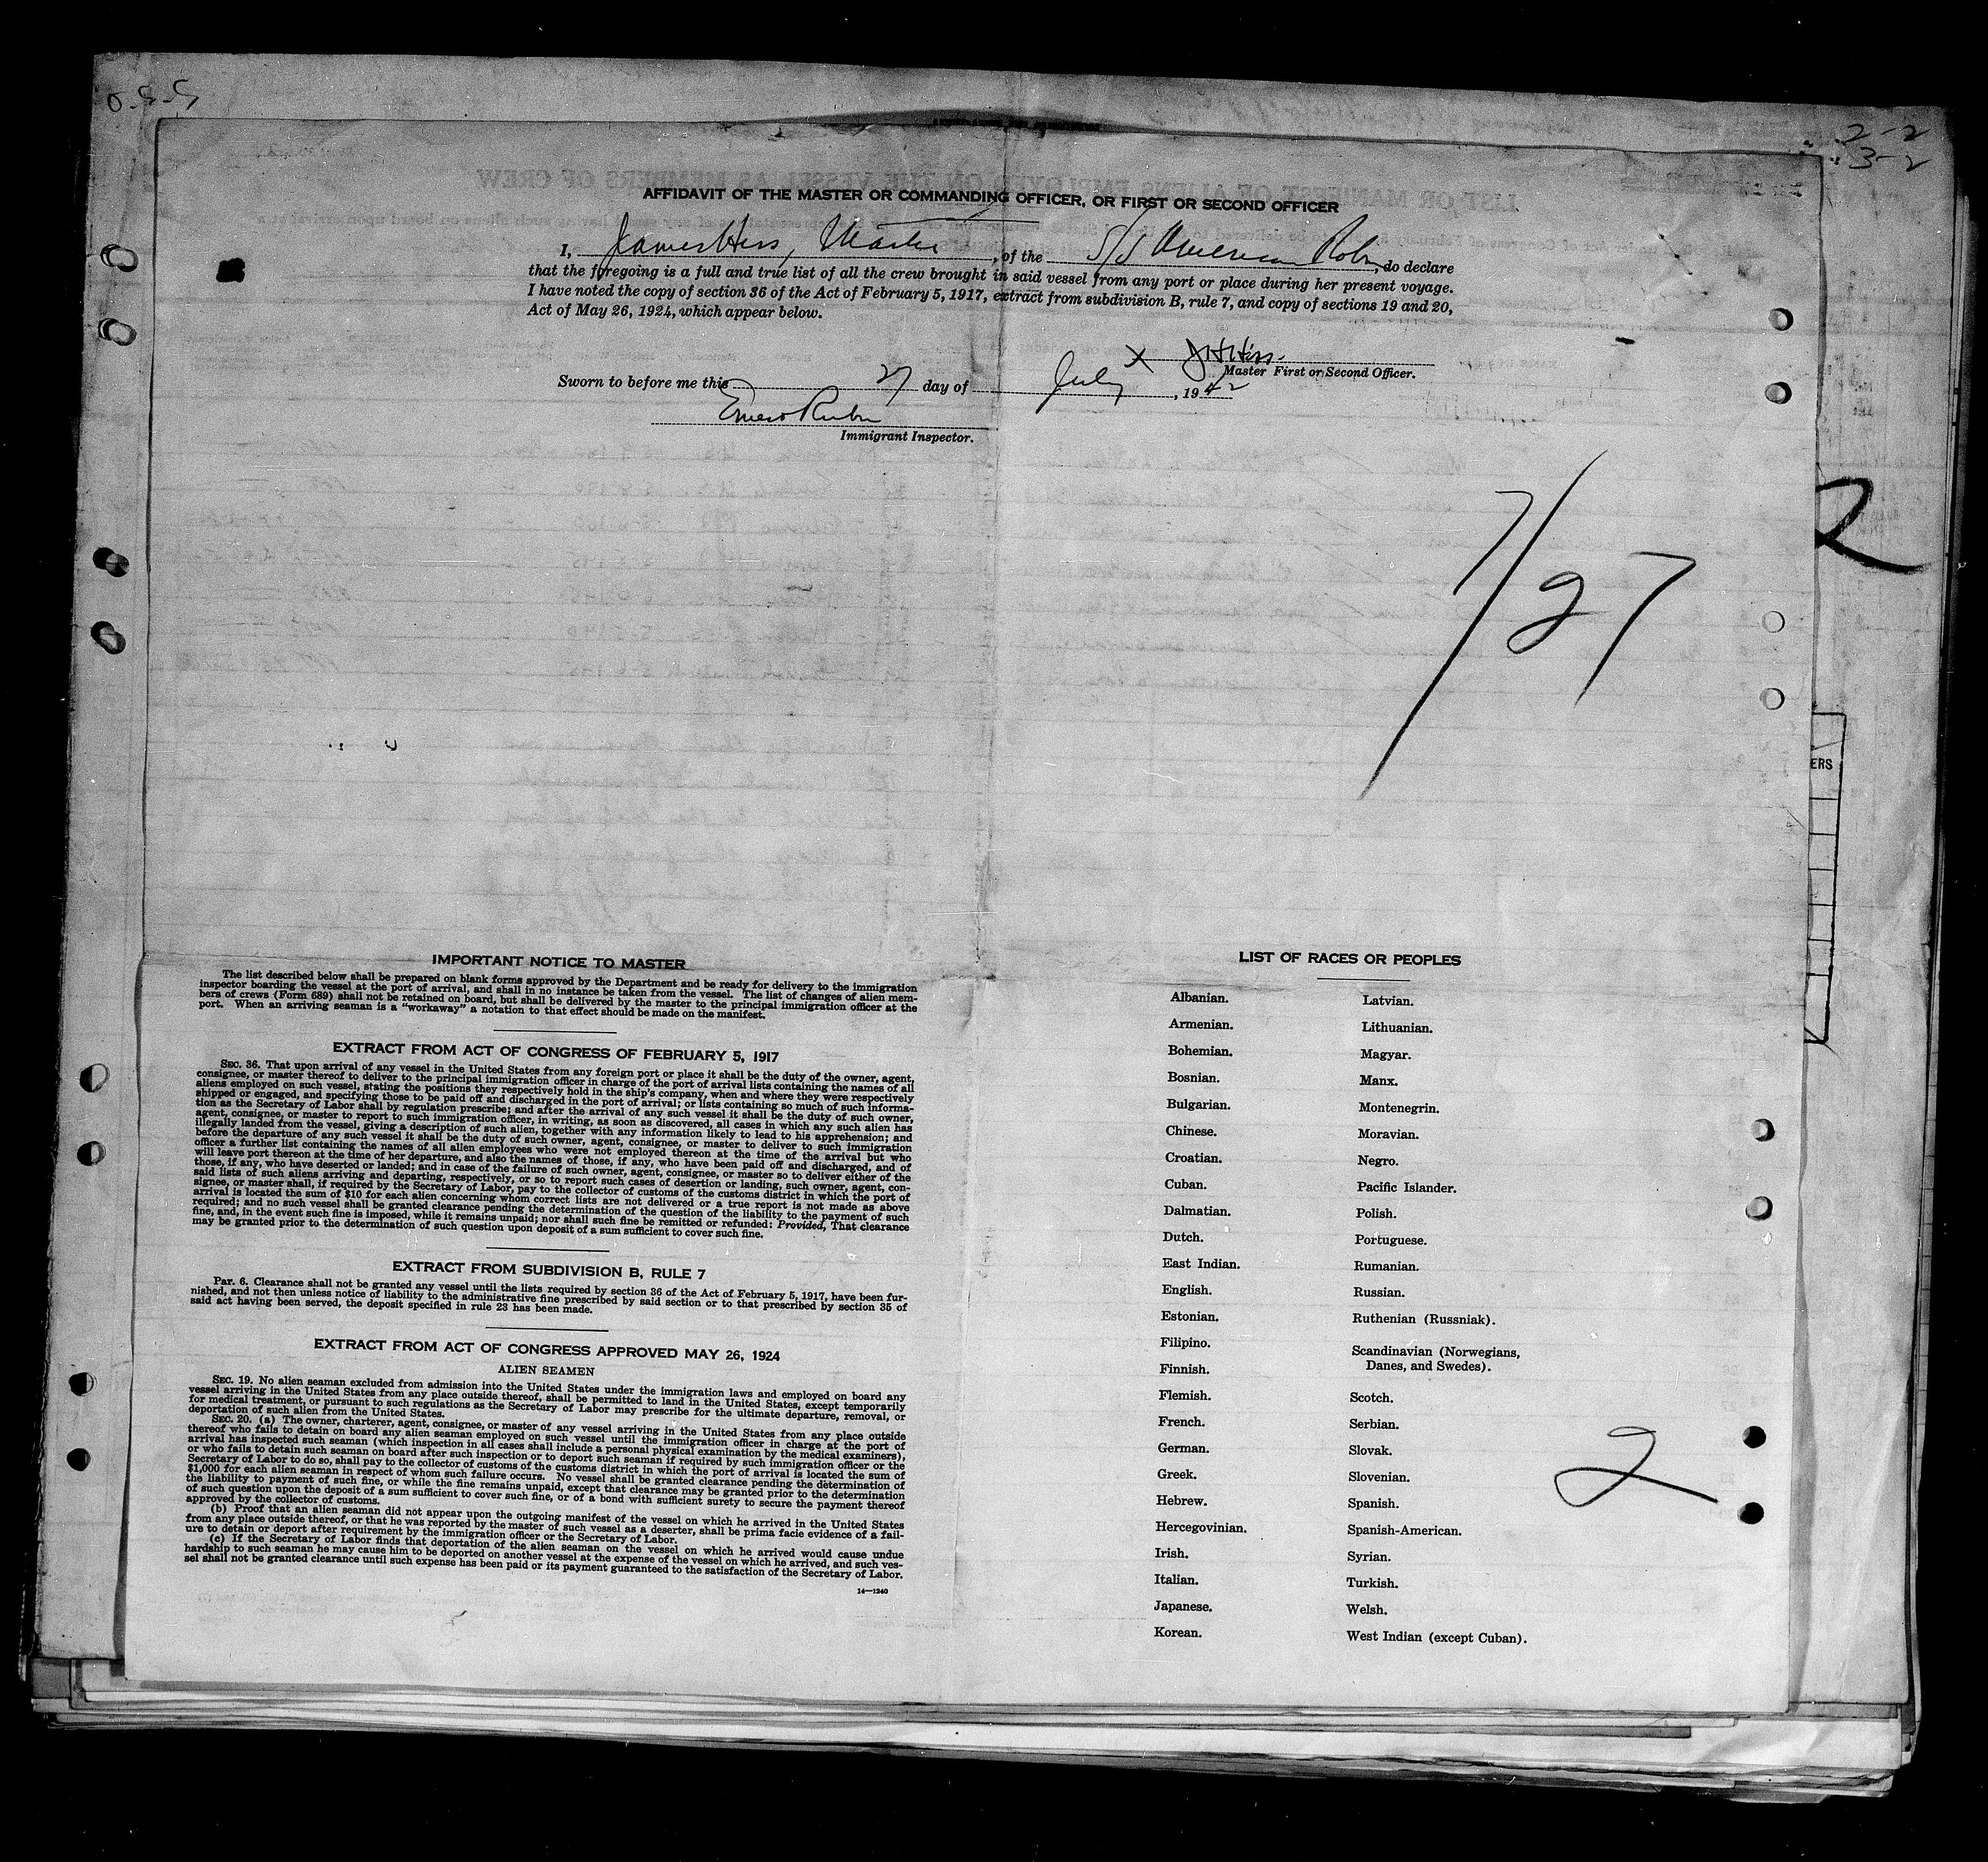 2-2
3-2
AFFIDAVIT OF THE MASTER OR COMMANDING OFFICER, OR FIRST OR SECOND OFFICER
I, James Hess, Master, of the S/S American Robin, do declare
that the foregoing is a full and true list of all the crew brought in said vessel from any port or place during her present voyage.
I have noted the copy of section 36 of the Act of February 5, 1917, extract from subdivision B, rule 7, and copy of sections 19 and 20,
Act of May 26, 1924, which appear below.
X J H Hess.
Master First or Second Officer.
Sworn to before me this 27 day of July, 1942
Immigrant Inspector.
7/27
2
ERS
IMPORTANT NOTICE TO MASTER
The list described below shall be prepared on blank forms approved by the Department and be ready for delivery to the immigration
inspector boarding the vessel at the port of arrival, and shall in no instance be taken from the vessel. The list of changes of alien mem-
bers of crews (Form 689) shall not be retained on board, but shall be delivered by the master to the principal immigration officer at the
port. When an arriving seaman is a "workaway" a notation to that effect should be made on the manifest.
EXTRACT FROM ACT OF CONGRESS OF FEBRUARY 5, 1917
SEC. 36. That upon arrival of any vessel in the United States from any foreign port or place it shall be the duty of the owner, agent,
consignee, or master thereof to deliver to the principal immigration officer in charge of the port of arrival lists containing the names of all
aliens employed on such vessel, stating the positions they respectively hold in the ship's company, when and where they were respectively
shipped or engaged, and specifying those to be paid off and discharged in the port of arrival; or lists containing so much of such informa-
tion as the Secretary of Labor shall by regulation prescribe; and after the arrival of any such vessel it shall be the duty of such owner,
agent, consignee, or master to report to such immigration officer, in writing, as soon as discovered, all cases in which any such alien has
illegally landed from the vessel, giving a description of such alien, together with any information likely to lead to his apprehension; and
before the departure of any such vessel it shall be the duty of such owner, agent, consignee, or master to deliver to such immigration
officer a further list containing the names of all alien employees who were not employed thereon at the time of the arrival but who
will leave port thereon at the time of her departure, and also the names of those, if any, who have been paid off and discharged, and of
those, if any, who have deserted or landed; and in case of the failure of such owner, agent, consignee, or master so to deliver either of the
said lists of such aliens arriving and departing, respectively, or so to report such cases of desertion or landing, such owner, agent, con-
signee, or master shall, if required by the Secretary of Labor, pay to the collector of customs of the customs district in which the port of
arrival is located the sum of $10 for each alien concerning whom correct lists are not delivered or a true report is not made as above
required; and no such vessel shall be granted clearance pending the determination of the question of the liability to the payment of such
fine, and, in the event such fine is imposed, while it remains unpaid; nor shall such fine be remitted or refunded: Provided, That clearance
may be granted prior to the determination of such question upon deposit of a sum sufficient to cover such fine.
EXTRACT FROM SUBDIVISION B, RULE 7
Par. 6. Clearance shall not be granted any vessel until the lists required by section 36 of the Act of February 5, 1917, have been fur-
nished, and not then unless notice of liability to the administrative fine prescribed by said section or to that prescribed by section 35 of
said act having been served, the deposit specified in rule 23 has been made.
EXTRACT FROM ACT OF CONGRESS APPROVED MAY 26, 1924
ALIEN SEAMEN
SEC. 19. No alien seaman excluded from admission into the United States under the immigration laws and employed on board any
vessel arriving in the United States from any place outside thereof, shall be permitted to land in the United States, except temporarily
for medical treatment, or pursuant to such regulations as the Secretary of Labor may prescribe for the ultimate departure, removal, or
deportation of such alien from the United States.
SEC. 20. (a) The owner, charterer, agent, consignee, or master of any vessel arriving in the United States from any place outside
thereof who fails to detain on board any alien seaman employed on such vessel until the immigration officer in charge at the port of
arrival has inspected such seaman (which inspection in all cases shall include a personal physical examination by the medical examiners),
or who fails to detain such seaman on board after such inspection or to deport such seaman if required by such immigration officer or the
Secretary of Labor to do so, shall pay to the collector of customs of the customs district in which the port of arrival is located the sum of
$1,000 for each alien seaman in respect of whom such failure occurs. No vessel shall be granted clearance pending the determination of
the liability to payment of such fine, or while the fine remains unpaid, except that clearance may be granted prior to the determination
of such question upon the deposit of a sum sufficient to cover such fine, or of a bond with sufficient surety to secure the payment thereof
approved by the collector of customs.
(b) Proof that an alien seaman did not appear upon the outgoing manifest of the vessel on which he arrived in the United States
from any place outside thereof, or that he was reported by the master of such vessel as a deserter, shall be prima facie evidence of a fail-
ure to detain or deport after requirement by the immigration officer or the Secretary of Labor.
(c) If the Secretary of Labor finds that deportation of the alien seaman on the vessel on which he arrived would cause undue
hardship to such seaman he may cause him to be deported on another vessel at the expense of the vessel on which he arrived, and such ves-
sel shall not be granted clearance until such expense has been paid or its payment guaranteed to the satisfaction of the Secretary of Labor.
14—1240
LIST OF RACES OR PEOPLES
Albanian.
Armenian.
Bohemian.
Bosnian.
Bulgarian.
Chinese.
Croatian.
Cuban.
Dalmatian.
Dutch.
East Indian.
English.
Estonian.
Filipino.
Finnish.
Flemish.
French.
German.
Greek.
Hebrew.
Hercegovinian.
Irish.
Italian.
Japanese.
Korean.
Latvian.
Lithuanian.
Magyar.
Manx.
Montenegrin.
Moravian.
Negro.
Pacific Islander.
Polish.
Portuguese.
Rumanian.
Russian.
Ruthenian (Russniak).
Scandinavian (Norwegians,
Danes, and Swedes).
Scotch.
Serbian.
Slovak.
Slovenian.
Spanish.
Spanish-American.
Syrian.
Turkish.
Welsh.
West Indian (except Cuban).
2